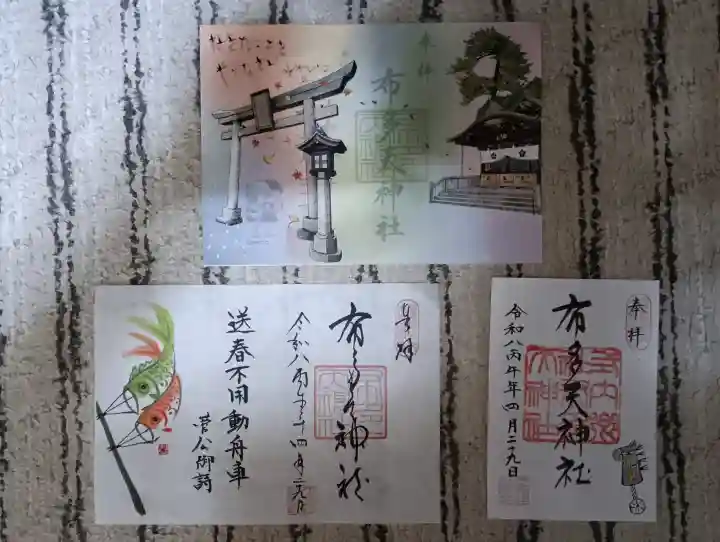 奉拝
布多天神社
奉拝
布多天神社
令和八丙午年四月二十九日
送春不用動舟車
菅公御詩
奉拝
布多天神社
令和八丙午年四月二十九日